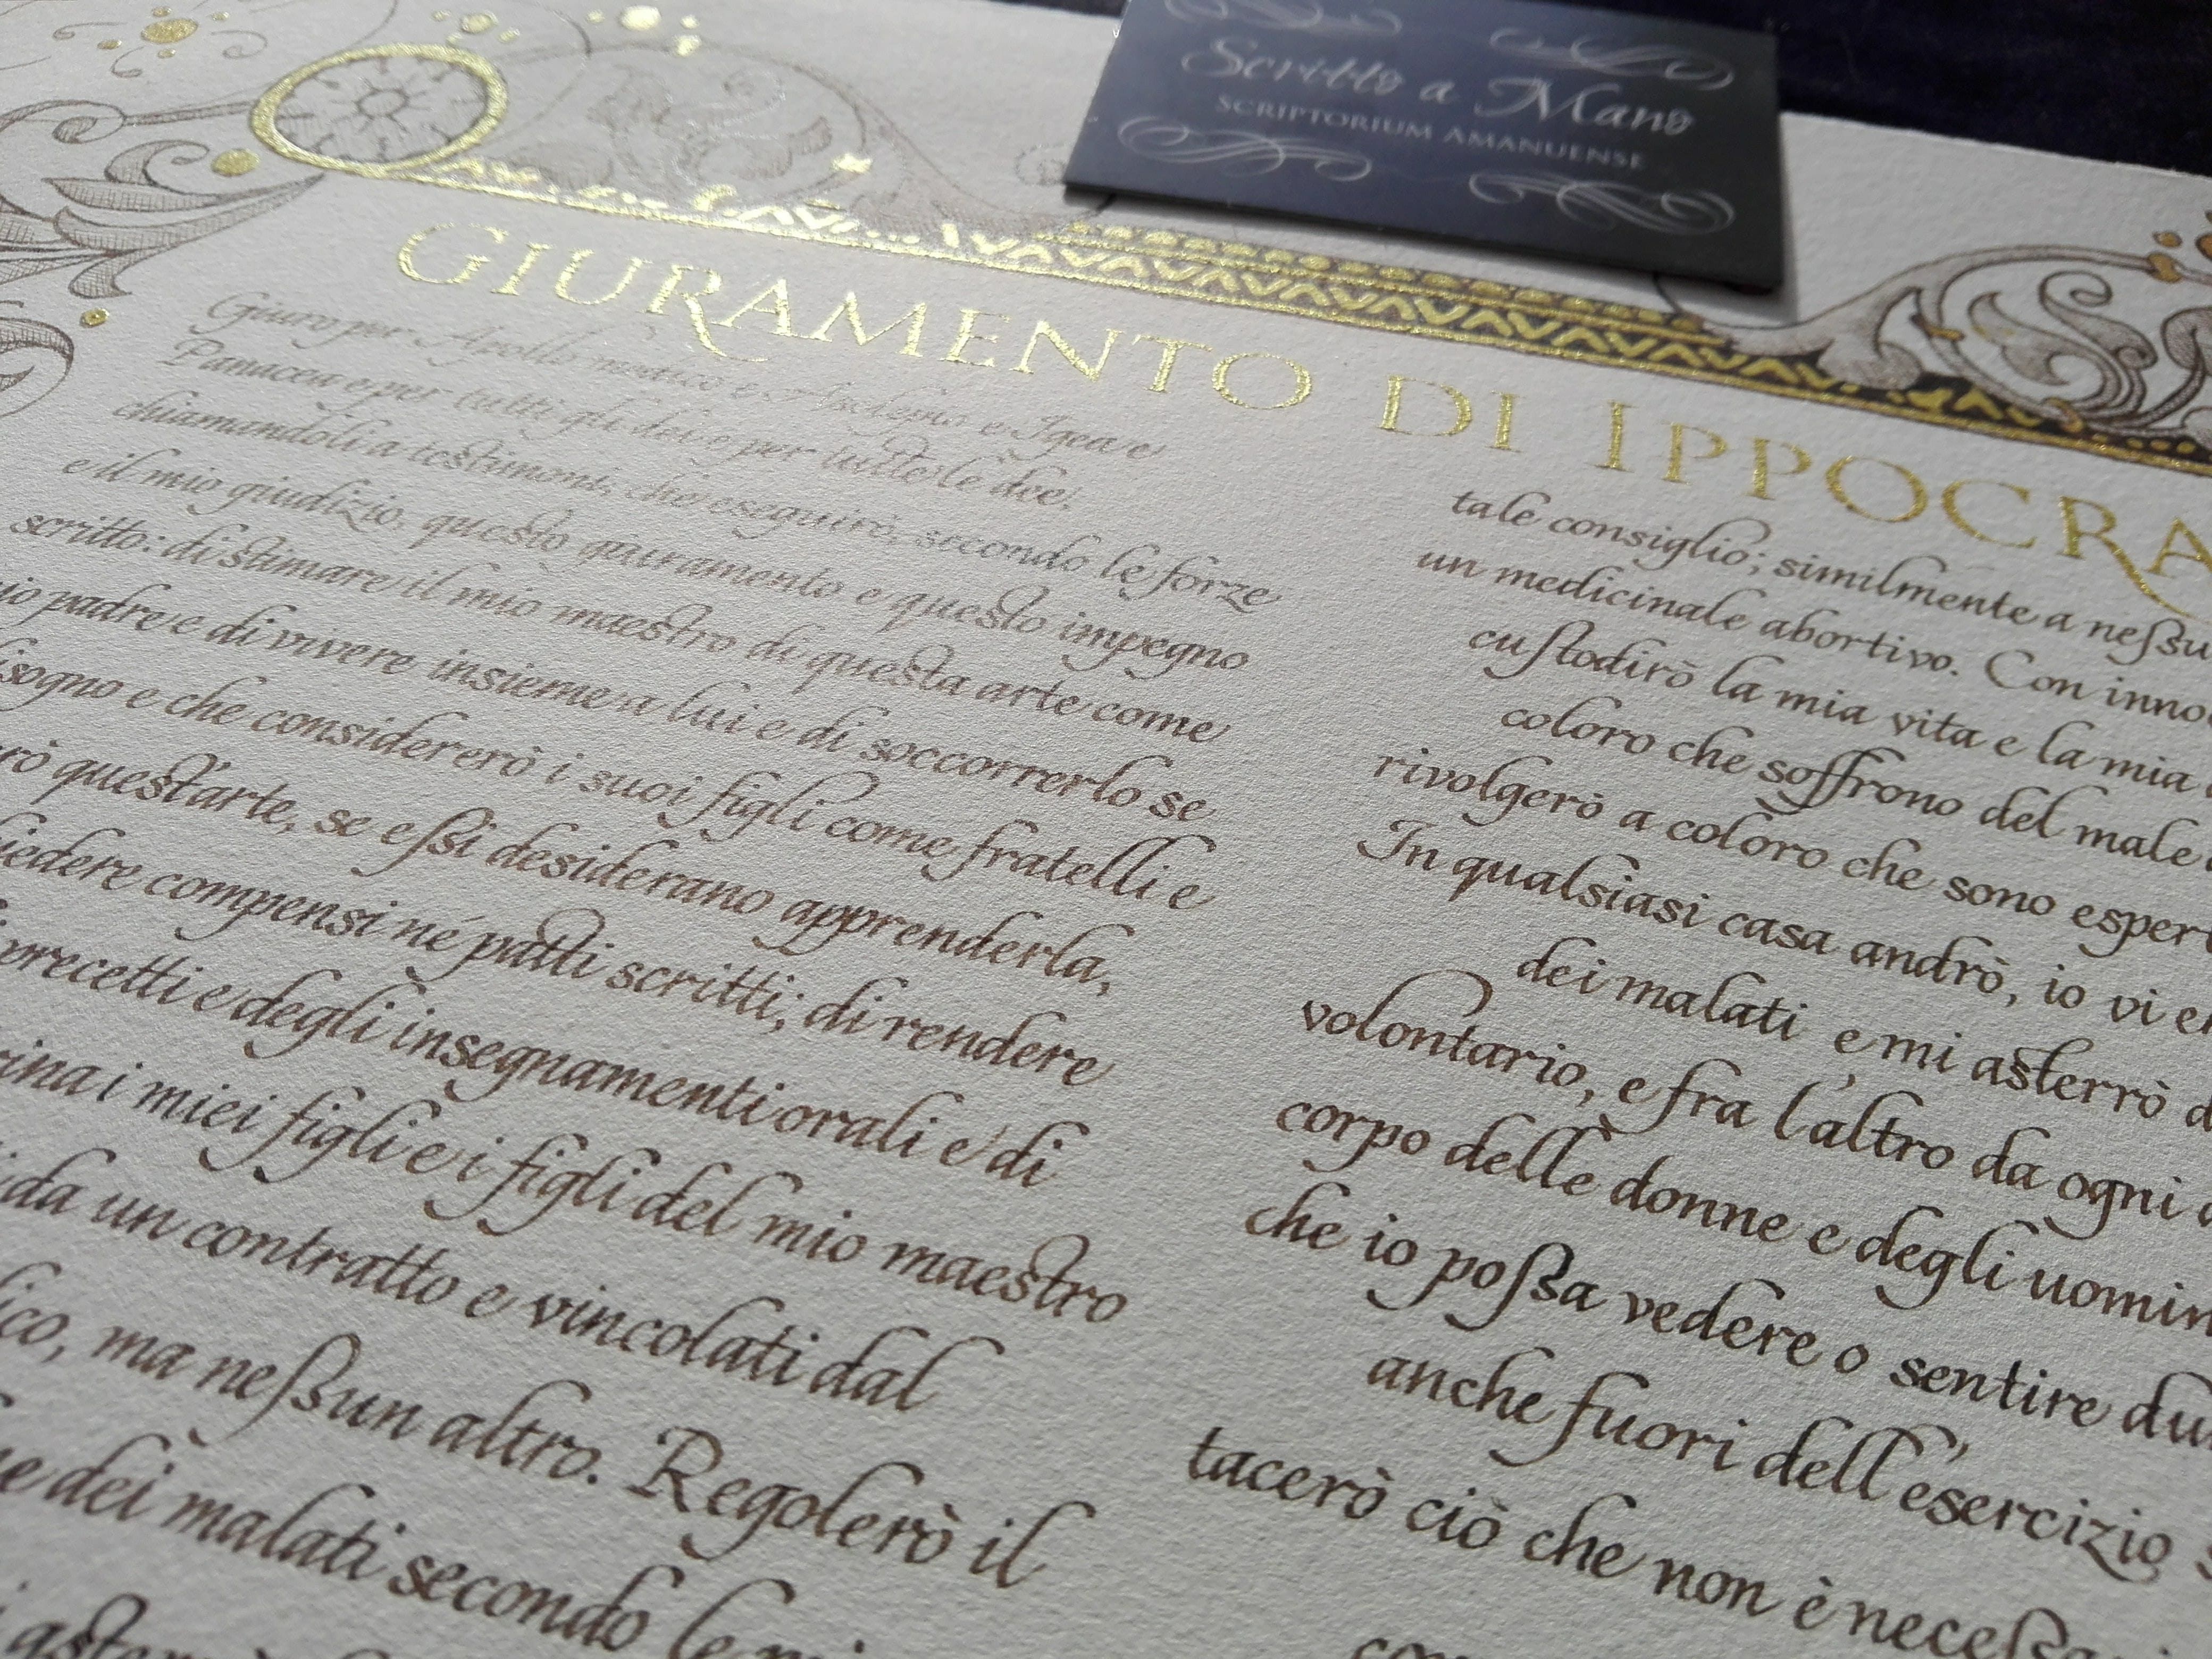 Scritto a Mano
SCRIPTORIUM AMANUENSE
GIURAMENTO DI IPPOCRA
Giuro per Apollo medico e Asclepio e Igea e
Panacea e per tutti gli dei e per tutte le dee,
chiamandoli a testimoni, che eseguirò, secondo le forze
e il mio giudizio, questo giuramento e questo impegno
scritto: di stimare il mio maestro di questa arte come
io padre e di vivere insieme a lui e di soccorrerlo se
isogno e che considererò i suoi figli come fratelli e
rò quest'arte, se eſsi desiderano apprenderla,
iedere compensi né patti scritti, di rendere
precetti e degli insegnamenti orali e di
rina i miei figli e i figli del mio maestro
da un contratto e vincolati dal
ico, ma neſsun altro. Regolerò il
e dei malati secondo le mi
tale consiglio; similmente a neſsu
un medicinale abortivo. Con inno
cuſtodirò la mia vita e la mia
coloro che soffrono del male
rivolgerò a coloro che sono espert
In qualsiasi casa andrò, io vi en
dei malati e mi asterrò d
volontario, e fra l'altro da ogni a
corpo delle donne e degli uomin
che io poſsa vedere o sentire du
anche fuori dell'esercizio s
tacerò ciò che non è neceſsari